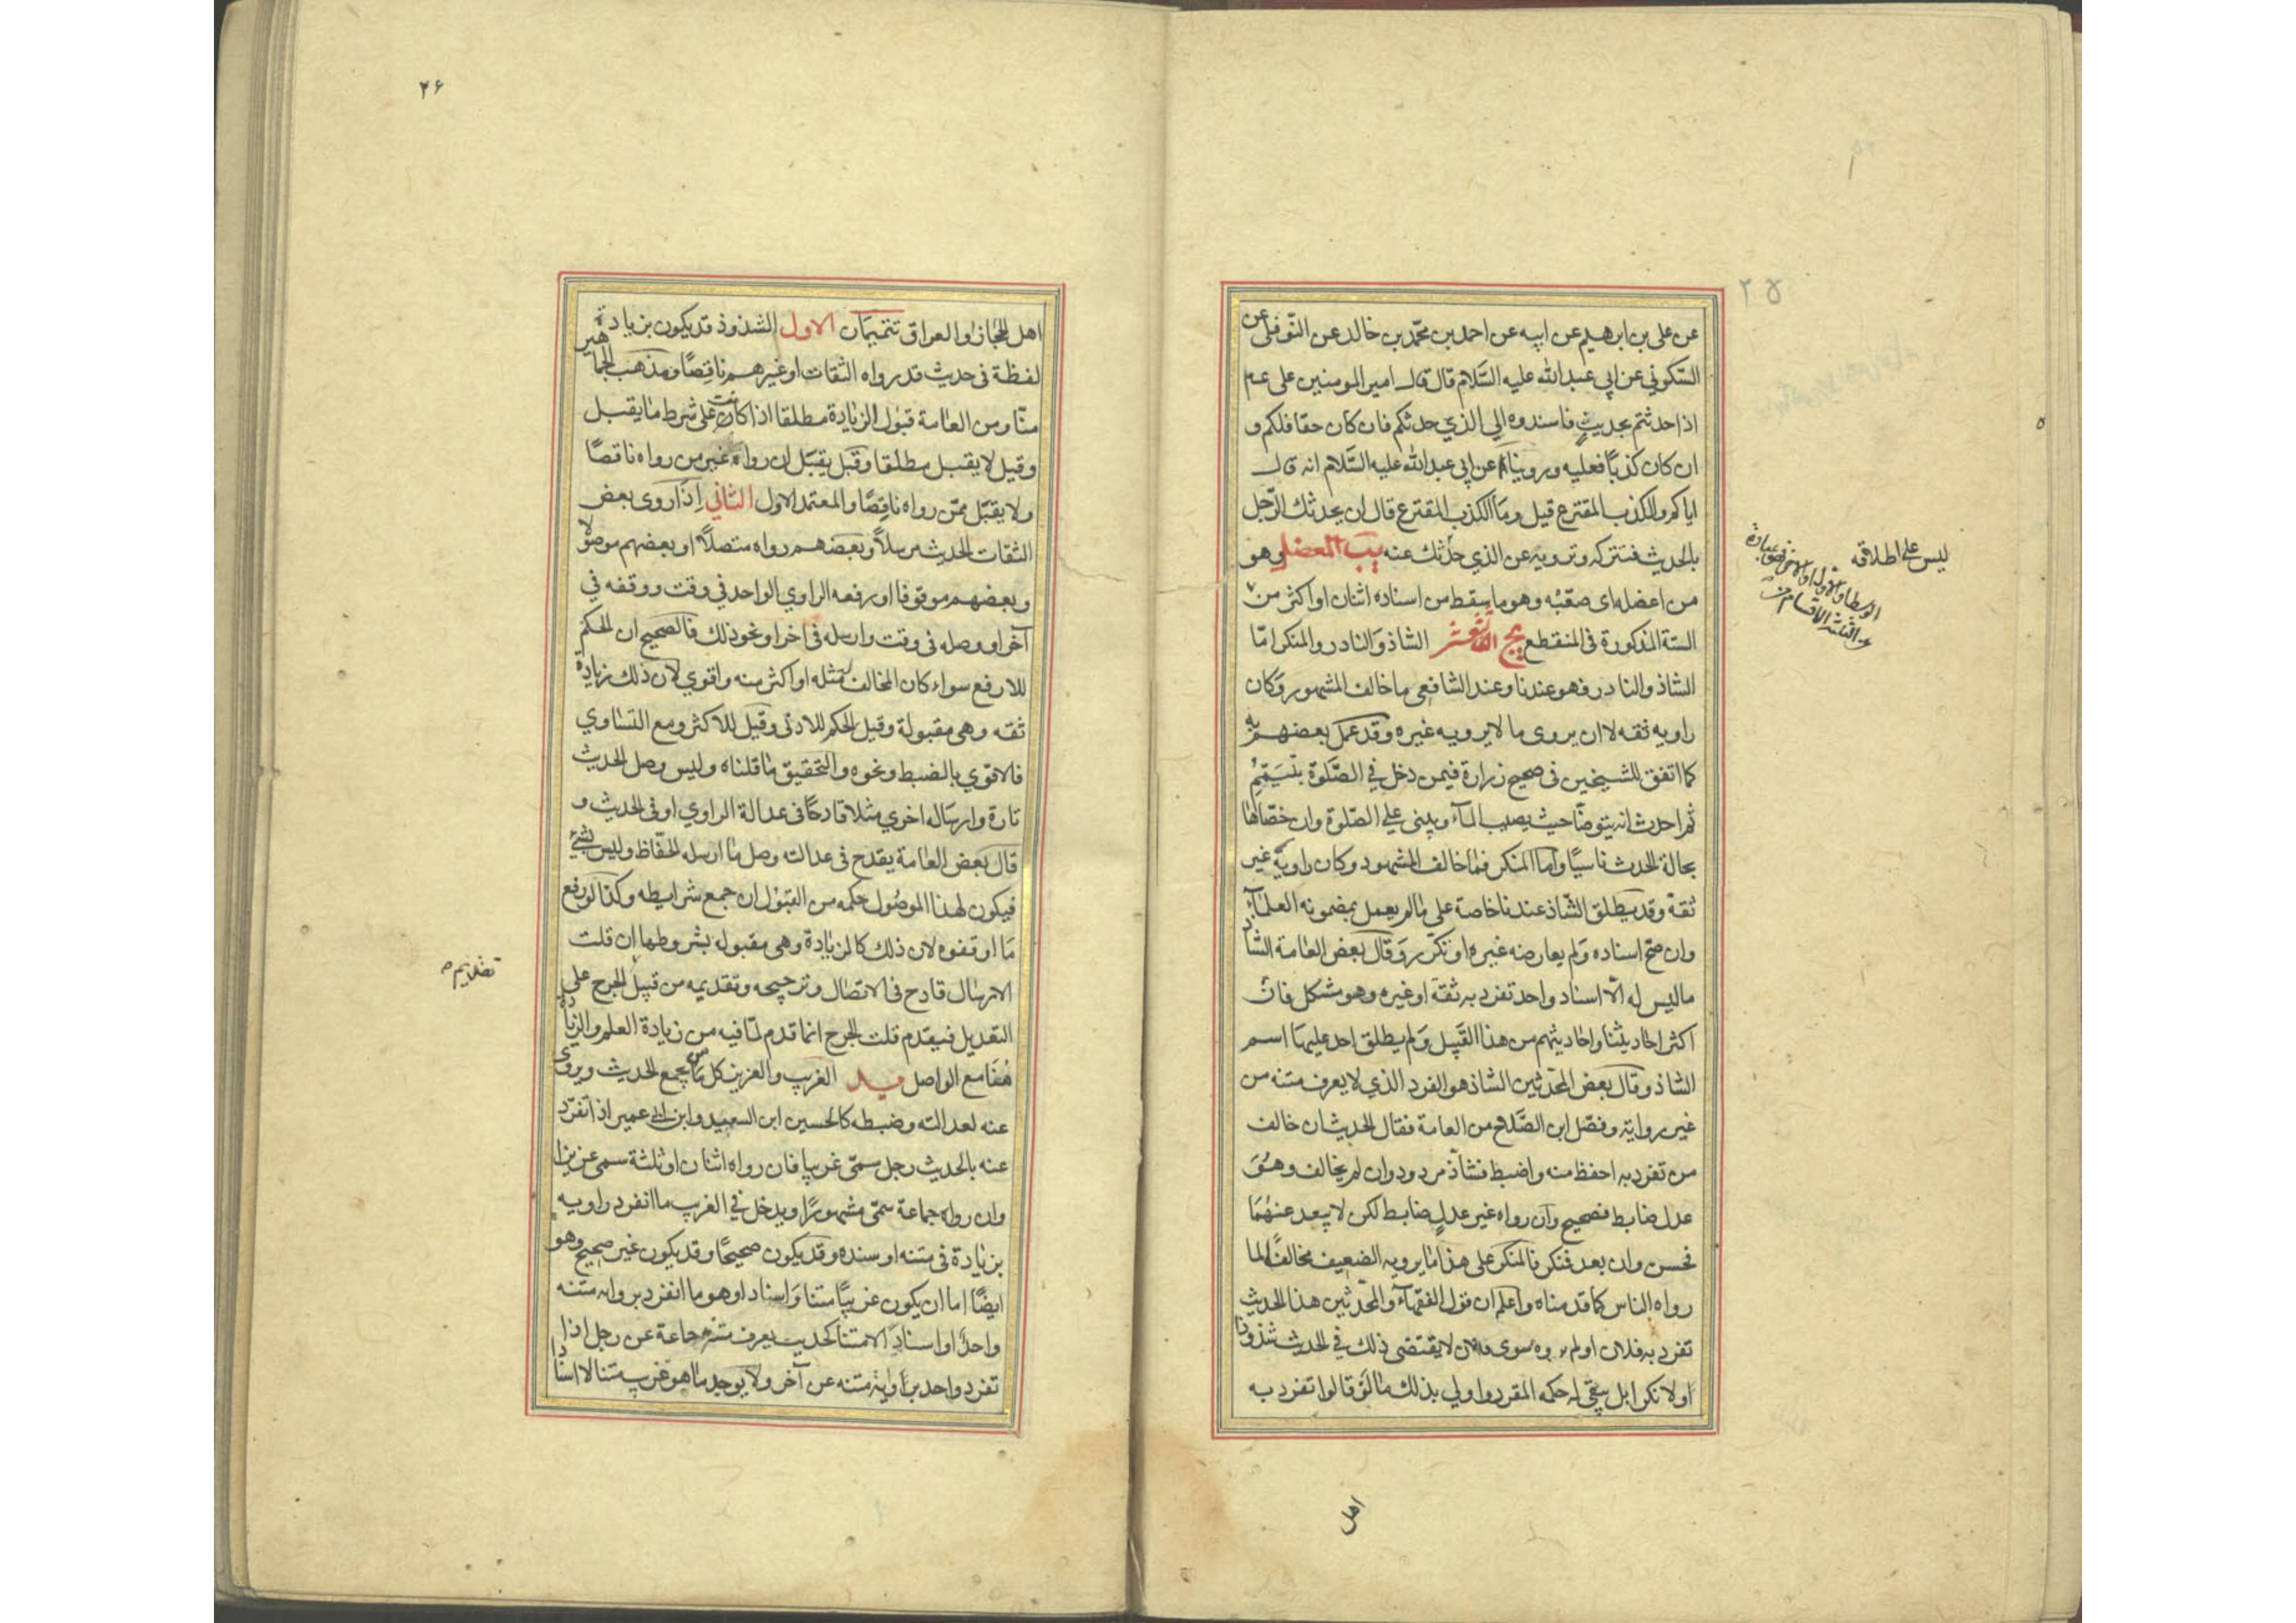 ٢٥
عن على بن ابرهيم عن ابيه عن احمد بن محمّد بن خالد عن النّوفلى عن
السّكوني عن ابي عبدالله عليه السَّلام قال قال امير المومنين على عم
اذا حدثتم بحديثٍ فاسندوه الي الذي حدثكم فان كان حقا فلكم و
ان كان كذبًا فعليه وروينا عن ابي عبدالله عليه السَّلام انه قال
اياكم والكذب المقترع قيل وما الكذب المقترع قال ان يحدثك الرّجل
بالحديث فتتركه وترويه عن الذي حدّثك عنه يب المعضل وهو
من اعضله اى صعّبه وهو ما سقط من اسناده اثنان او اكثر من
الستة المذكورة فى المنقطع يج الشاذ والنادر والمنكر امّا
الشاذ والنادر فهو عندنا وعند الشافعى ما خالف المشهور وكان
راويه ثقه لا ان يروى ما لا يرويه غيره وقد عمل بعضهم به
كما اتفق للشيخين فى صحيح زرارة فيمن دخل في الصَّلوة بتيمّمٍ
ثم احدث انه يتوضّا حيث يصيب المآء ويبنى علي الصّلوة وان خصّاها
بحالة الحدث ناسيًا واما المنكر فما خالف المشهود وكان راويه غير
ثقة وقد يطلق الشّاذ عندنا خاصة على ما لم يعمل بمضمونه العلمآء
وان صحّ اسناده ولم يعارضه غيره او تكرّر وقال بعض العامة الشاذ
ما ليس له الّا اسناد واحد تفرد به ثقة او غيره وهو مشكل فان
اكثر احاديثنا واحاديثهم من هذا القَبيل ولم يطلق احد عليها اسم
الشاذ وقال بعض المحدّثين الشاذ هو الفرد الذي لا يعرف متنه من
غير روايته وفصّل ابن الصَّلاح من العامة فقال الحديث ان خالف
من تفرد به احفظ منه واضبط فشاذّ مردود وان لم يخالف وهو
عدل ضابط فصحيح وان رواه غير عدلٍ ضابط لكن لا يبعد عنهما
فحسن وان بعد فنكر فالمنكر على هذا ما يرويه الضعيف مخالفًا لما
رواه الناس كما قدمناه واعلم ان قول الفقهآء والمحدّثين هذا الحديث
تفرد به فلان او لم يروه سوى فلان لا يقتضى ذلك في الحديث شذوذا
او لا نكرا بل يبقى له حكمه المقرر واولي بذلك ما لو قالوا تفرد به
اهل
ليس على اطلاقه
٢۶
اهل الحجاز او العراق تتميمان الاول الشذوذ قد يكون بزيادة
لفظة فى حديث قد رواه الثقات او غيرهم ناقِصًا ومذهب الجماهير
منّا ومن العامة قبول الزيادة مطلقا اذا كانت على شرط ما يقبل
وقيل لا يقبل مطلقا وقيل يقبَل ان رواه غير من رواه ناقصًا
ولا يقبَل ممّن رواه ناقِصًا والمعتمد الاول الثاني إذا روى بعض
الثقات الحديث مرسلاً وبعضهم رواه متصلاً او بعضهم موصولا
وبعضهم موقوفا او رفعه الراوي الواحد في وقت ووقفه في
آخر او وصله فى وقت وارسله فى اخر او نحو ذلك فالصحيح ان الحكم
للارفع سواء كان المخالف له مثله او اكثر منه واقوي لان ذلك زيادة
ثقه وهى مقبولة وقيل الحكم للادنى وقيل للاكثر ومع التساوي
فالاقوي بالضبط ونحوه والتحقيق ما قلناه وليس وصل الحديث
تارة وارساله اخري مثلا قادحًا فى عدالة الراوي او فى الحديث و
قال بعض العامة يقدح فى عدالته وصل ما ارسله الحفّاظ وليس بشيٍ
فيكون لهذا الموصُول حكمه من القبول ان جمع شرايطه وكذا لو رفع
ما اوقفوه لان ذلك كالزيادة وهى مقبوله بشروطها ان قلت
الارسال قادح فى الاتصال وترجيحه وتقديمه من قبيل الجرح على
التعديل فيقدم قلت الجرح انما قدم لما فيه من زيادة العلم والزيادة
هُنا مع الواصل يد الغريب والعزيز كل من يجمع الحديث ويروى
عنه لعدالته وضبطه كالحسين ابن السعيد وابن ابي عمير اذا تفرّد
عنه بالحديث رجل سمّى غريبا فان رواه اثنان او ثلثة سمى عزيزا
وان رواه جماعة سمّى مشهورًا ويدخل في الغريب ما انفرد راويه
بزيادة فى متنه او سنده وقد يكون صحيحًا وقد يكون غير صحيح وهو
ايضًا اما ان يكون غريبًا متنا واسنادا وهو ما انفرد بروايه متنه
واحدٌ او اسنادًا لا متنا كحديث يعرف متنه جماعة عن رجل اذا
تفرد واحد بروايته متنه عن آخر ولا يوجد ما هو غريب متنا لا اسنادا